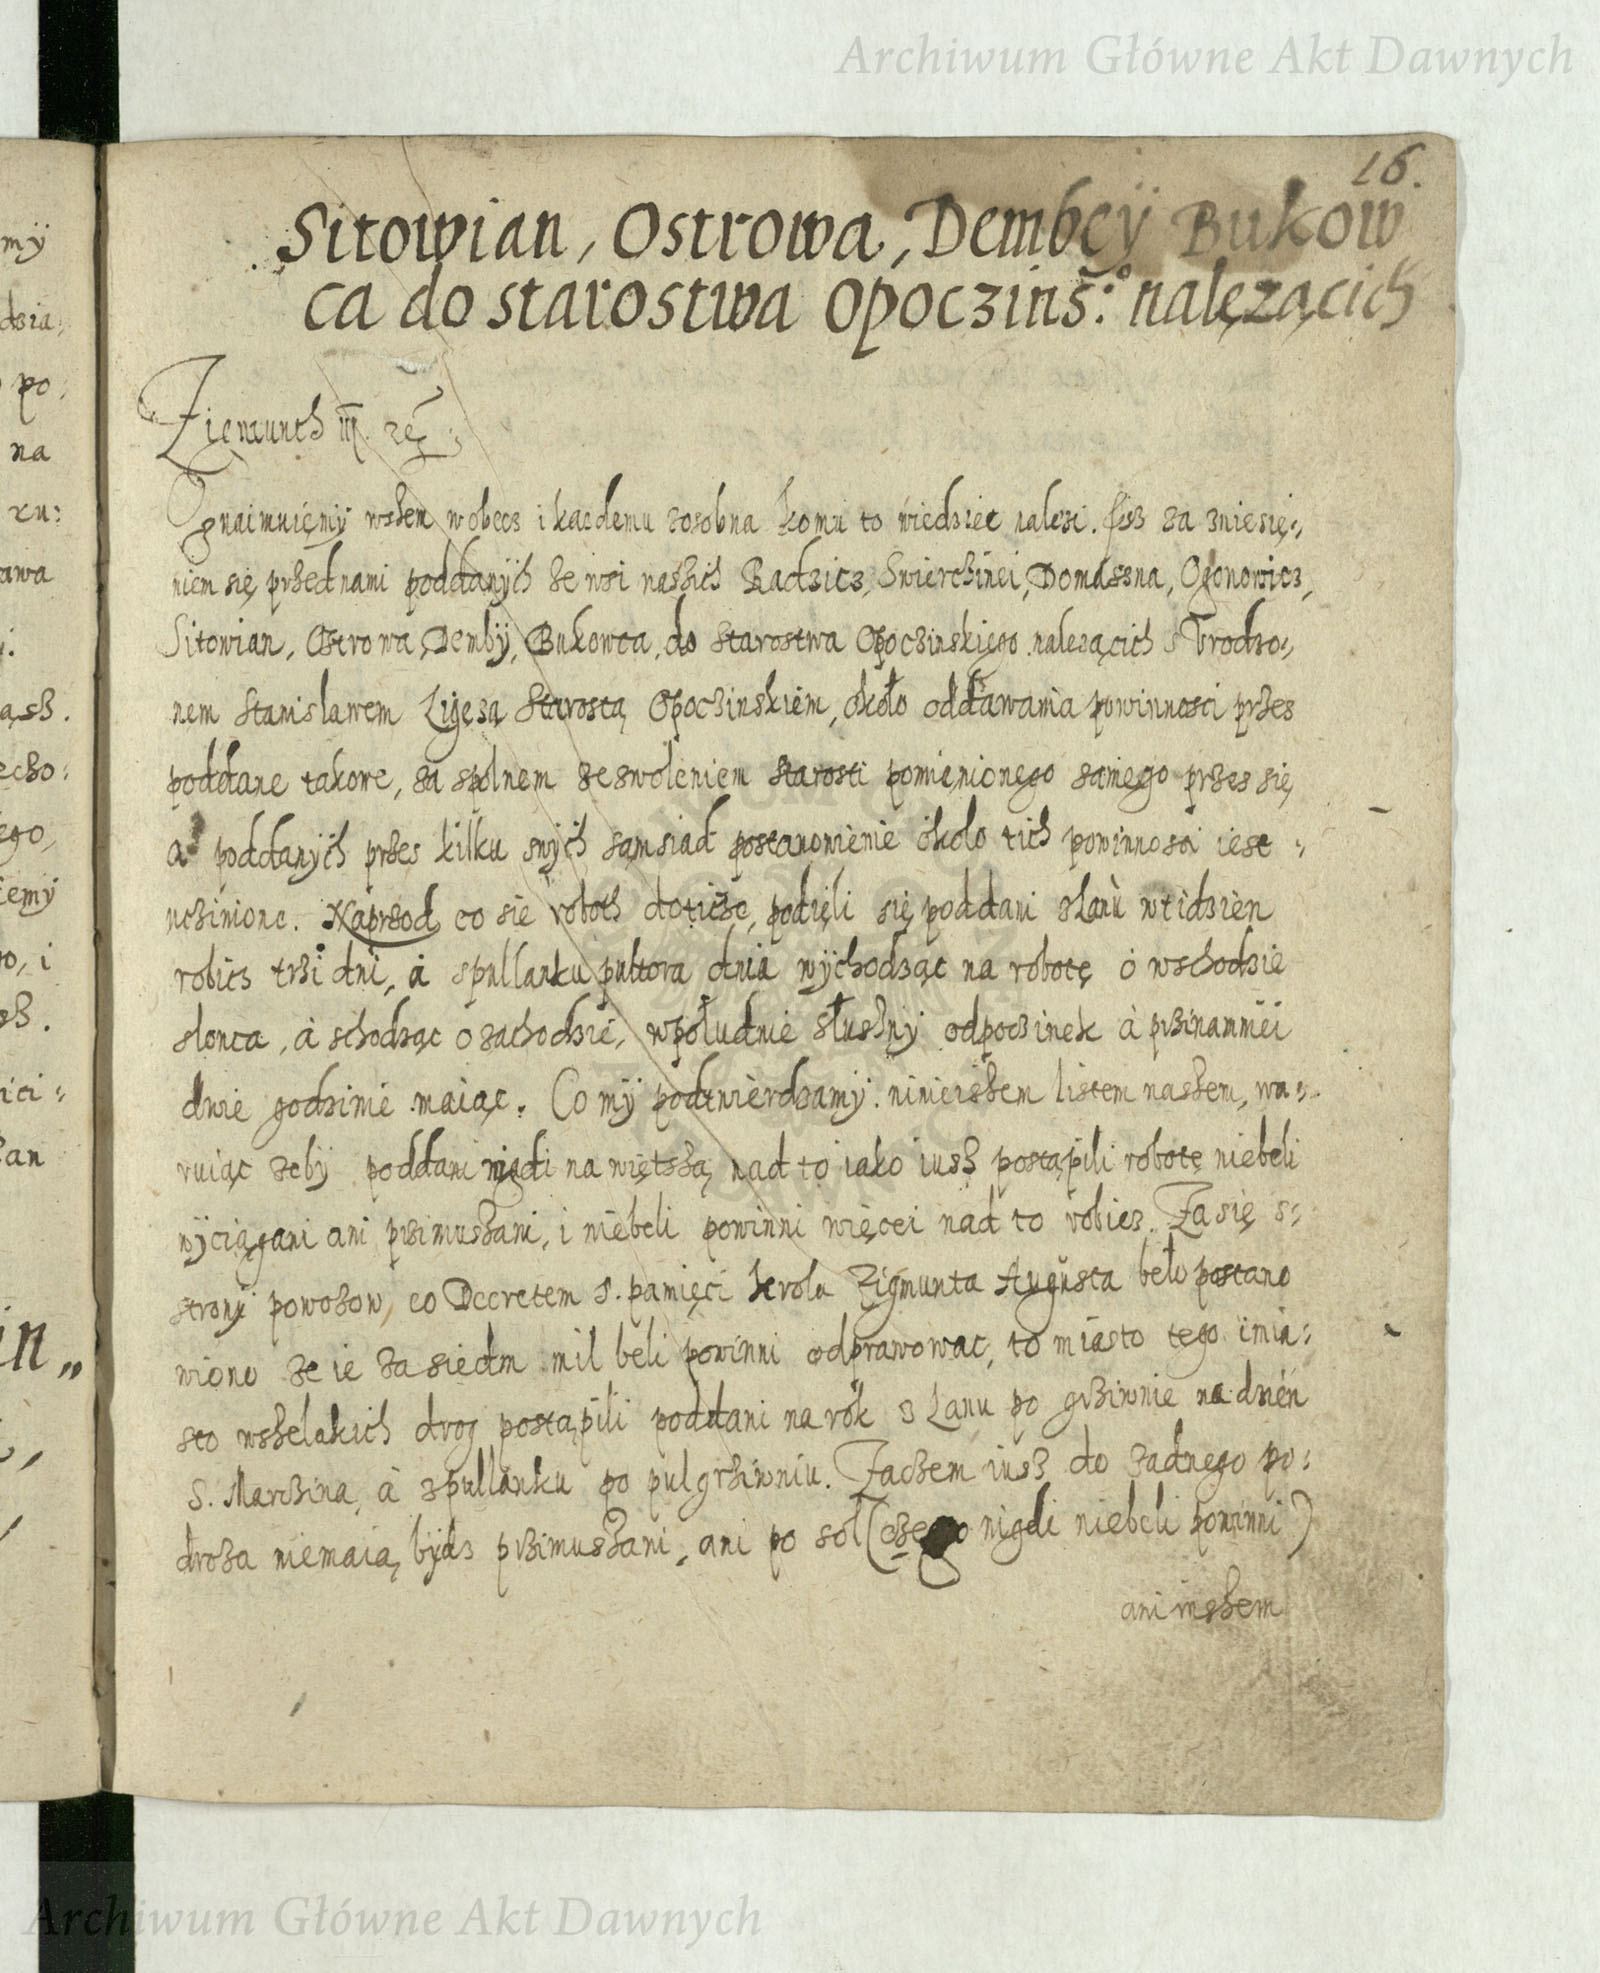 Archiwum Główne Akt Dawnych
16.
Sitowian, Ostrowa, Dembcÿ Bukow
ca do starostwa Opoczins: nalęzącich
Zigmunth III. rex
Oznaimuięmÿ wszem wobecz i kaczdemu zosobna komu to wiedziec nalezi. Isz za zniesię:,
niem się przed nami poddanÿch ze wsi naszich Radzicz, Swierczinei, Domaszna, Ogonowicz,
Sitowian, Ostrowa, Dembÿ, Bukowca, do starostwa Opoczinskięgo nalezącich s Urodzo:,
nem Stanislawem Ligęzą Starostą Opoczinskiem, około oddawania powinnosci przes
poddane takowe, za spolnem zezwoleniem starosti pomięnionego samego przes się
a poddanÿch przes kilku swÿch sąmsiad postanowienie około tich powinnosci iest :,
uczinione. Naprzod co sie roboth doticze, podięli się poddani z Lanu w tidzien
robicz trzi dni, à z pullanku pultora dnia wÿchodząc na robotę o wschodzie
slonca, à schodząc o zachodzie, w południe słusznÿ odpoczinek à przinamniei
dwie godzinie maiąc. Co mÿ podtwierdzamÿ niniejszem listem naszem, wa:,
ruiąc zebÿ poddani nigdi na więtszą nad to iako iusz postąpili robotę niebeli
wÿciągani ani przimuszani, i niebeli powinni więcei nad to robicz. Zasię s:,
stronÿ powozow, co Decretem s. pamięci Krola Zigmunta Augusta beło postano
wiono ze ie za siedm mil beli powinni odprawowac, to miasto tego i mia:
sto wszelakich drog postąpili poddani na rok z Lanu po grziwnie na dzień
S. Marczina, à z pullanku po pulgrziwniu. Zaczem iusz do zadnego po:
droza niemaią bÿdz przimuszani, ani po sol (czego nigdi niebeli powinni)
ani inszem
Archiwum Główne Akt Dawnych